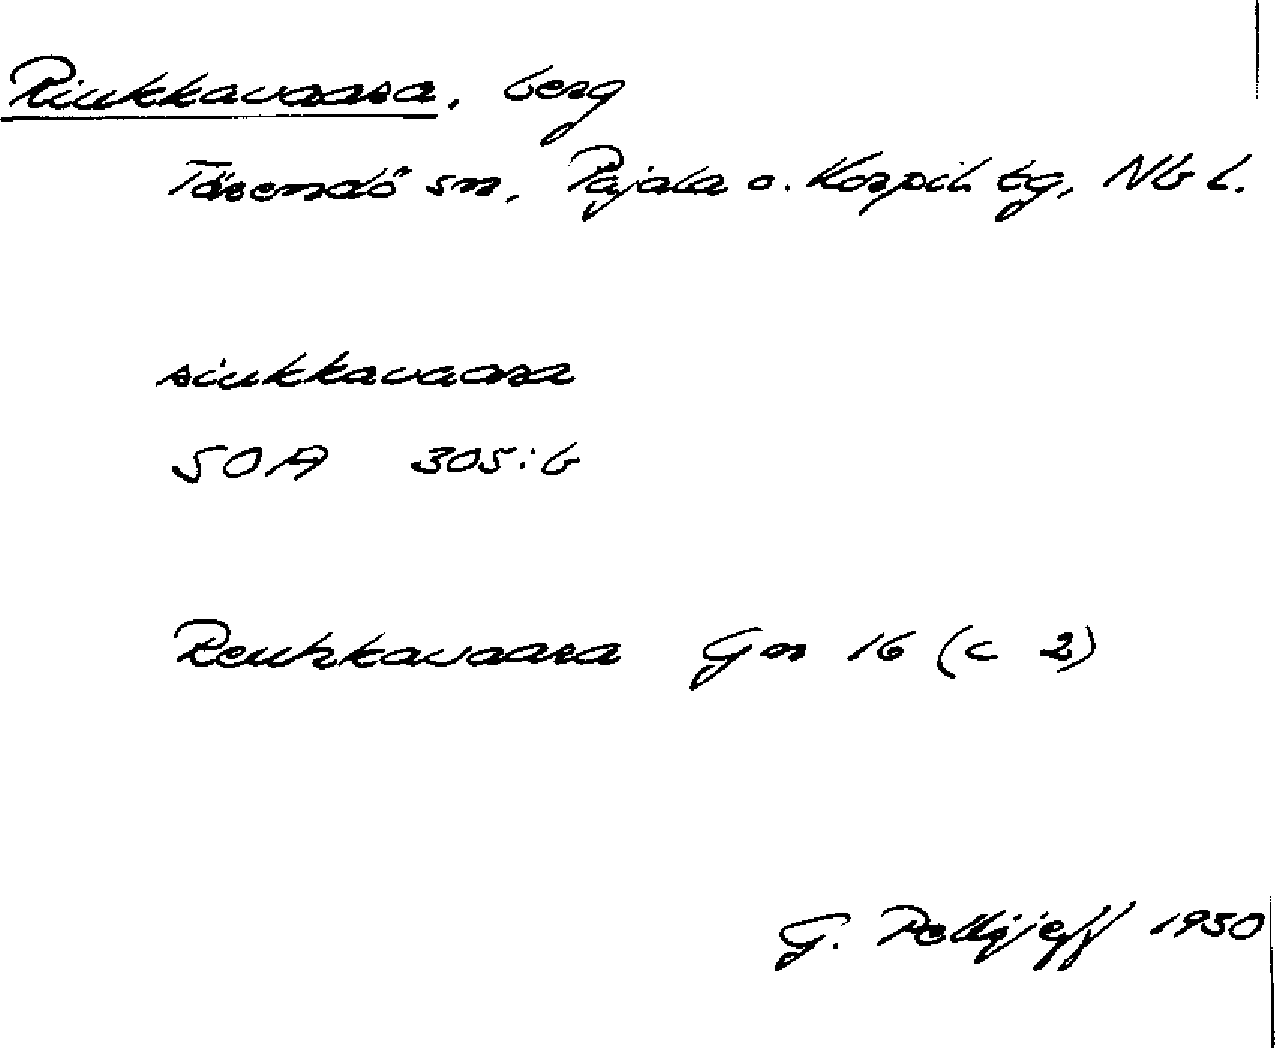 Riukkavaara, berg
Tärendö sn, Pajala o. Korpil. tg, Nb l.
riukkavaara
SOA 305:6
Reuhkavaara Gn 16 (c 2)
G. Pellijeff 1950